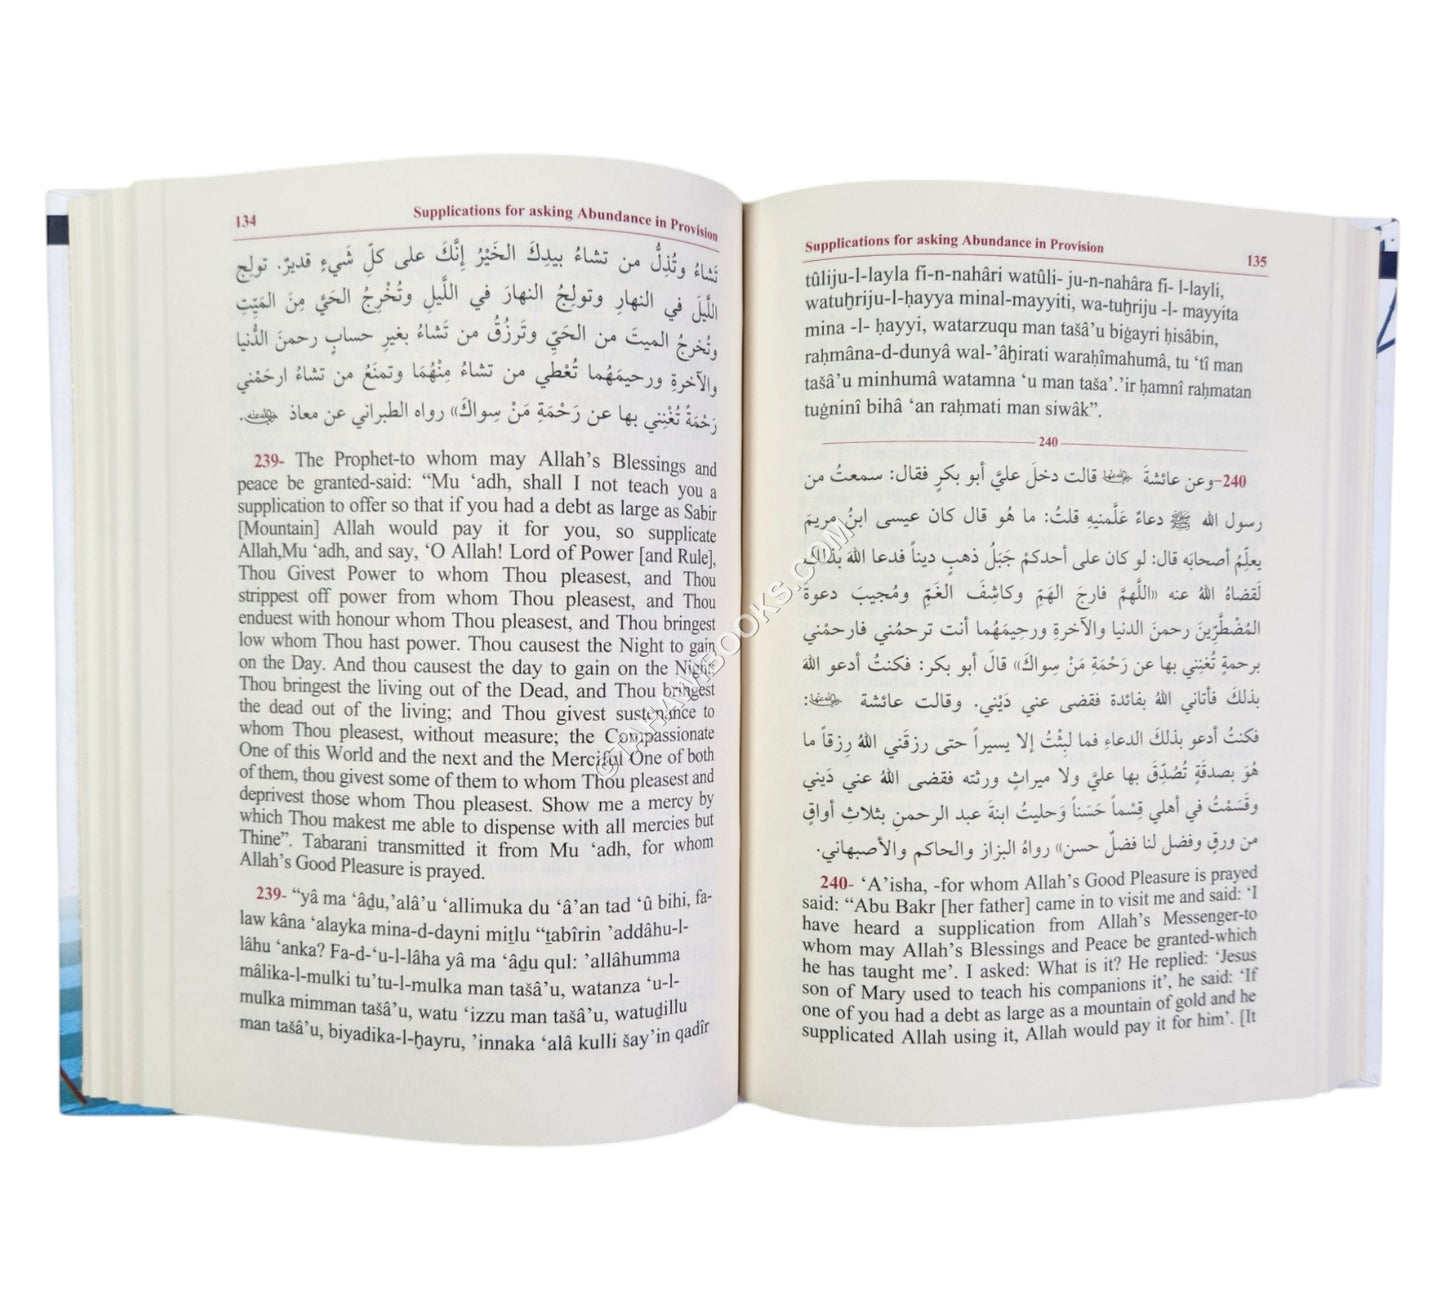 134
Supplications for asking Abundance in Provision
تَشاءُ وتُذِلُّ من تشاءُ بيدِكَ الخَيْرُ إنَّكَ على كلِّ شَيءٍ قديرٌ. تولِج
اللَّيلَ في النهارِ وتولِجُ النهارَ في الليلِ وتُخْرِجُ الحَيَّ مِنَ المَيِّتِ
وتُخرِجُ الميتَ من الحَيِّ وتَرزُقُ من تَشاءُ بغيرِ حسابٍ رحمنَ الدُّنيا
والآخرةِ ورحيمَهُما تُعْطي من تشاءُ مِنْهُمَا وتمنَعُ من تشاءُ ارحَمْني
رَحْمَةً تُغْنِني بها عن رَحْمَةِ مَنْ سِواكَ» رواه الطبراني عن معاذ ﵁.
239- The Prophet-to whom may Allah’s Blessings and
peace be granted-said: “Mu ‘adh, shall I not teach you a
supplication to offer so that if you had a debt as large as Sabir
[Mountain] Allah would pay it for you, so supplicate
Allah,Mu ‘adh, and say, ‘O Allah! Lord of Power [and Rule],
Thou Givest Power to whom Thou pleasest, and Thou
strippest off power from whom Thou pleasest, and Thou
enduest with honour whom Thou pleasest, and Thou bringest
low whom Thou hast power. Thou causest the Night to gain
on the Day. And thou causest the day to gain on the Night,
Thou bringest the living out of the Dead, and Thou bringest
the dead out of the living; and Thou givest sustenance to
whom Thou pleasest, without measure; the Compassionate
One of this World and the next and the Merciful One of both
of them, thou givest some of them to whom Thou pleasest and
deprivest those whom Thou pleasest. Show me a mercy by
which Thou makest me able to dispense with all mercies but
Thine”. Tabarani transmitted it from Mu ‘adh, for whom
Allah’s Good Pleasure is prayed.
239- “yâ ma ‘âḏu,’alâ’u ‘allimuka du ‘â’an tad ‘û bihi, fa-
law kâna ‘alayka mina-d-dayni miṯlu “ṯabîrin ’addâhu-l-
lâhu ‘anka? Fa-d-‘u-l-lâha yâ ma ‘âḏu qul: ’allâhumma
mâlika-l-mulki tu’tu-l-mulka man tašâ’u, watanza ‘u-l-
mulka mimman tašâ’u, watu ‘izzu man tašâ’u, watuḏillu
man tašâ’u, biyadika-l-ḫayru, ’innaka ‘alâ kulli šay’in qadîr
Supplications for asking Abundance in Provision
135
tûliju-l-layla fi-n-nahâri watûli- ju-n-nahâra fi- l-layli,
watuḫriju-l-ḥayya minal-mayyiti, wa-tuḫriju -l- mayyita
mina -l- ḥayyi, watarzuqu man tašâ’u biġayri ḥisâbin,
raḥmâna-d-dunyâ wal-’âḫirati waraḥîmahumâ, tu ‘tî man
tašâ’u minhumâ watamna ‘u man taša’.’ir ḥamnî raḥmatan
tuġninî bihâ ‘an raḥmati man siwâk”.
240
240–وعن عائشةَ ﵂ قالت دخلَ عليَّ أبو بكرٍ فقال: سمعتُ من
رسول الله ﷺ دعاءً عَلَّمنيهِ قلتُ: ما هُو قال كان عيسى ابنُ مريمَ
يعلِّمُ أصحابَه قال: لو كان على أحدكمْ جَبَلُ ذهبٍ ديناً فدعا اللهَ بذلكَ
لَقضاهُ اللهُ عنه «اللَّهمَّ فارِجَ الهَمِّ وكاشِفَ الغَمِّ ومُجيبَ دعوة
المُضْطَّرِّينَ رحمنَ الدنيا والآخرةِ ورحِيمَهُما أنت ترحمُني فارحمْني
برحمةٍ تُغنِني بها عن رَحْمَةِ مَنْ سِواكَ» قالَ أبو بكر: فكنتُ أدعو اللهَ
بذلكَ فأتاني اللهُ بفائدة فقضى عني دَيْني. وقالت عائشة ﵂:
فكنتُ أدعو بذلكَ الدعاءِ فما لبِثْتُ إلا يسيراً حتى رزقَني اللهُ رِزقاً ما
هُوَ بصدقَةٍ تُصُدِّقَ بها عليَّ ولا ميراثٍ ورثته فقضى اللهُ عني دَيني
وقَسَمْتُ في أهلي قِسْماً حَسَناً وحليتُ ابنةَ عبد الرحمنِ بثلاثِ أواقٍ
من ورقٍ وفضل لنا فضلٌ حسن» رواهُ البزاز والحاكم والأصبهاني.
240- ‘A’isha, -for whom Allah’s Good Pleasure is prayed
said: “Abu Bakr [her father] came in to visit me and said: ‘I
have heard a supplication from Allah’s Messenger-to
whom may Allah’s Blessings and Peace be granted-which
he has taught me’. I asked: What is it? He replied: ‘Jesus
son of Mary used to teach his companions it’, he said: ‘If
one of you had a debt as large as a mountain of gold and he
supplicated Allah using it, Allah would pay it for him’. [It